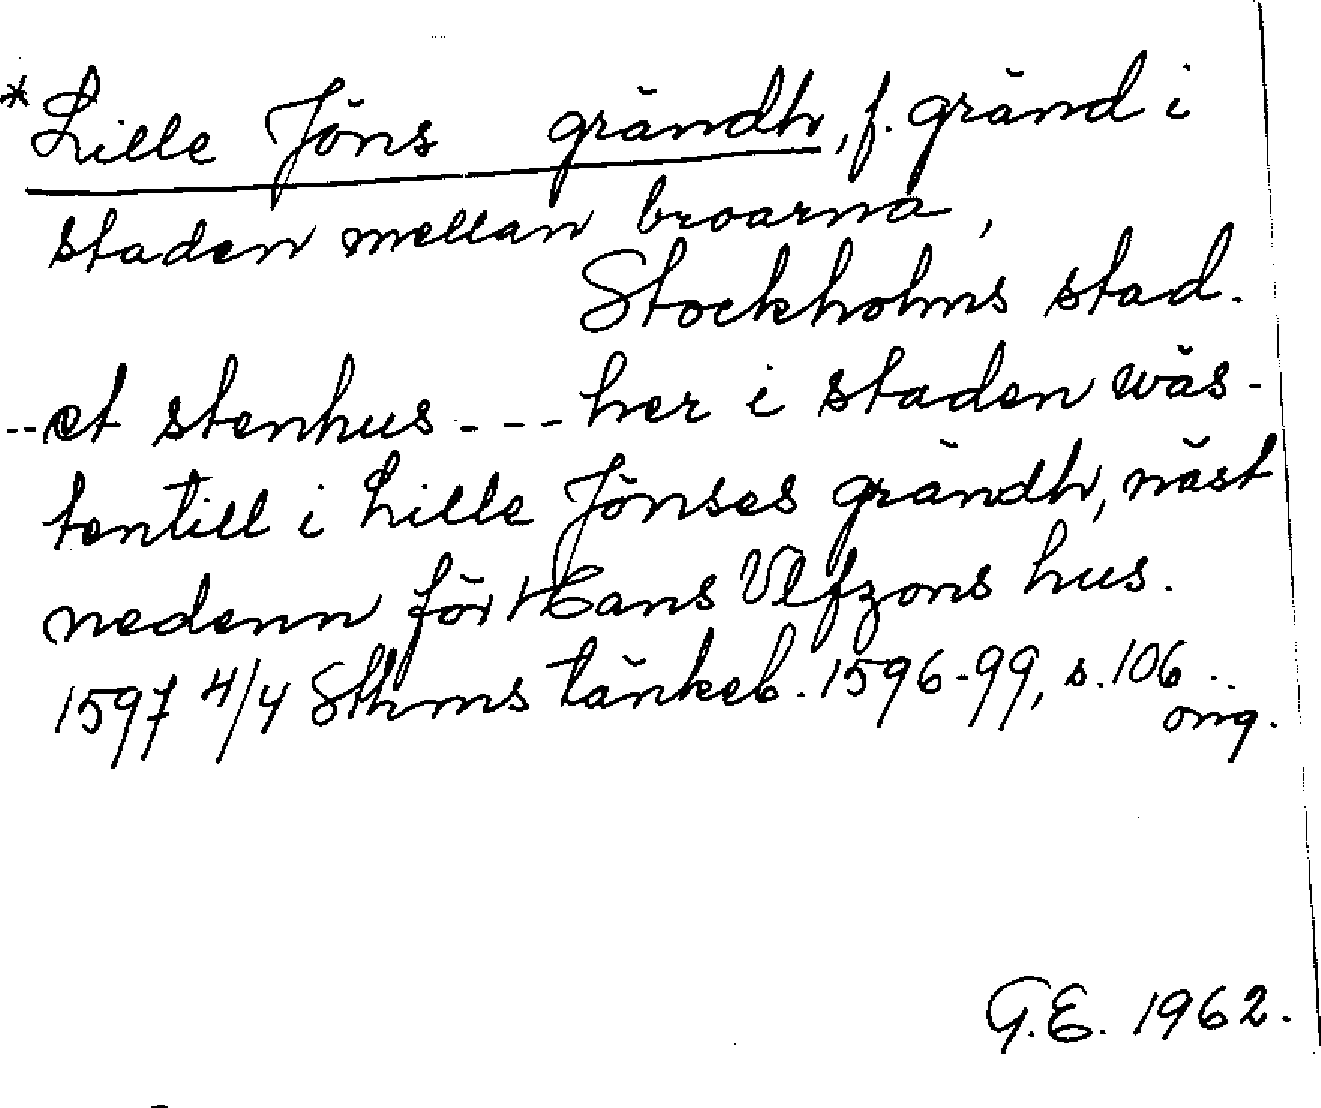 *Lille Jöns grändh, f. gränd i
staden mellan broarna,
Stockholms stad.
--et stenhus --- her i staden wäs-
tentill i Lille Jönses grändh, näst
nedenn för Hans Ulfzons hus.
1597 4/4 Sthms tänkeb. 1596-99, s. 106.
orig.
G.E. 1962.